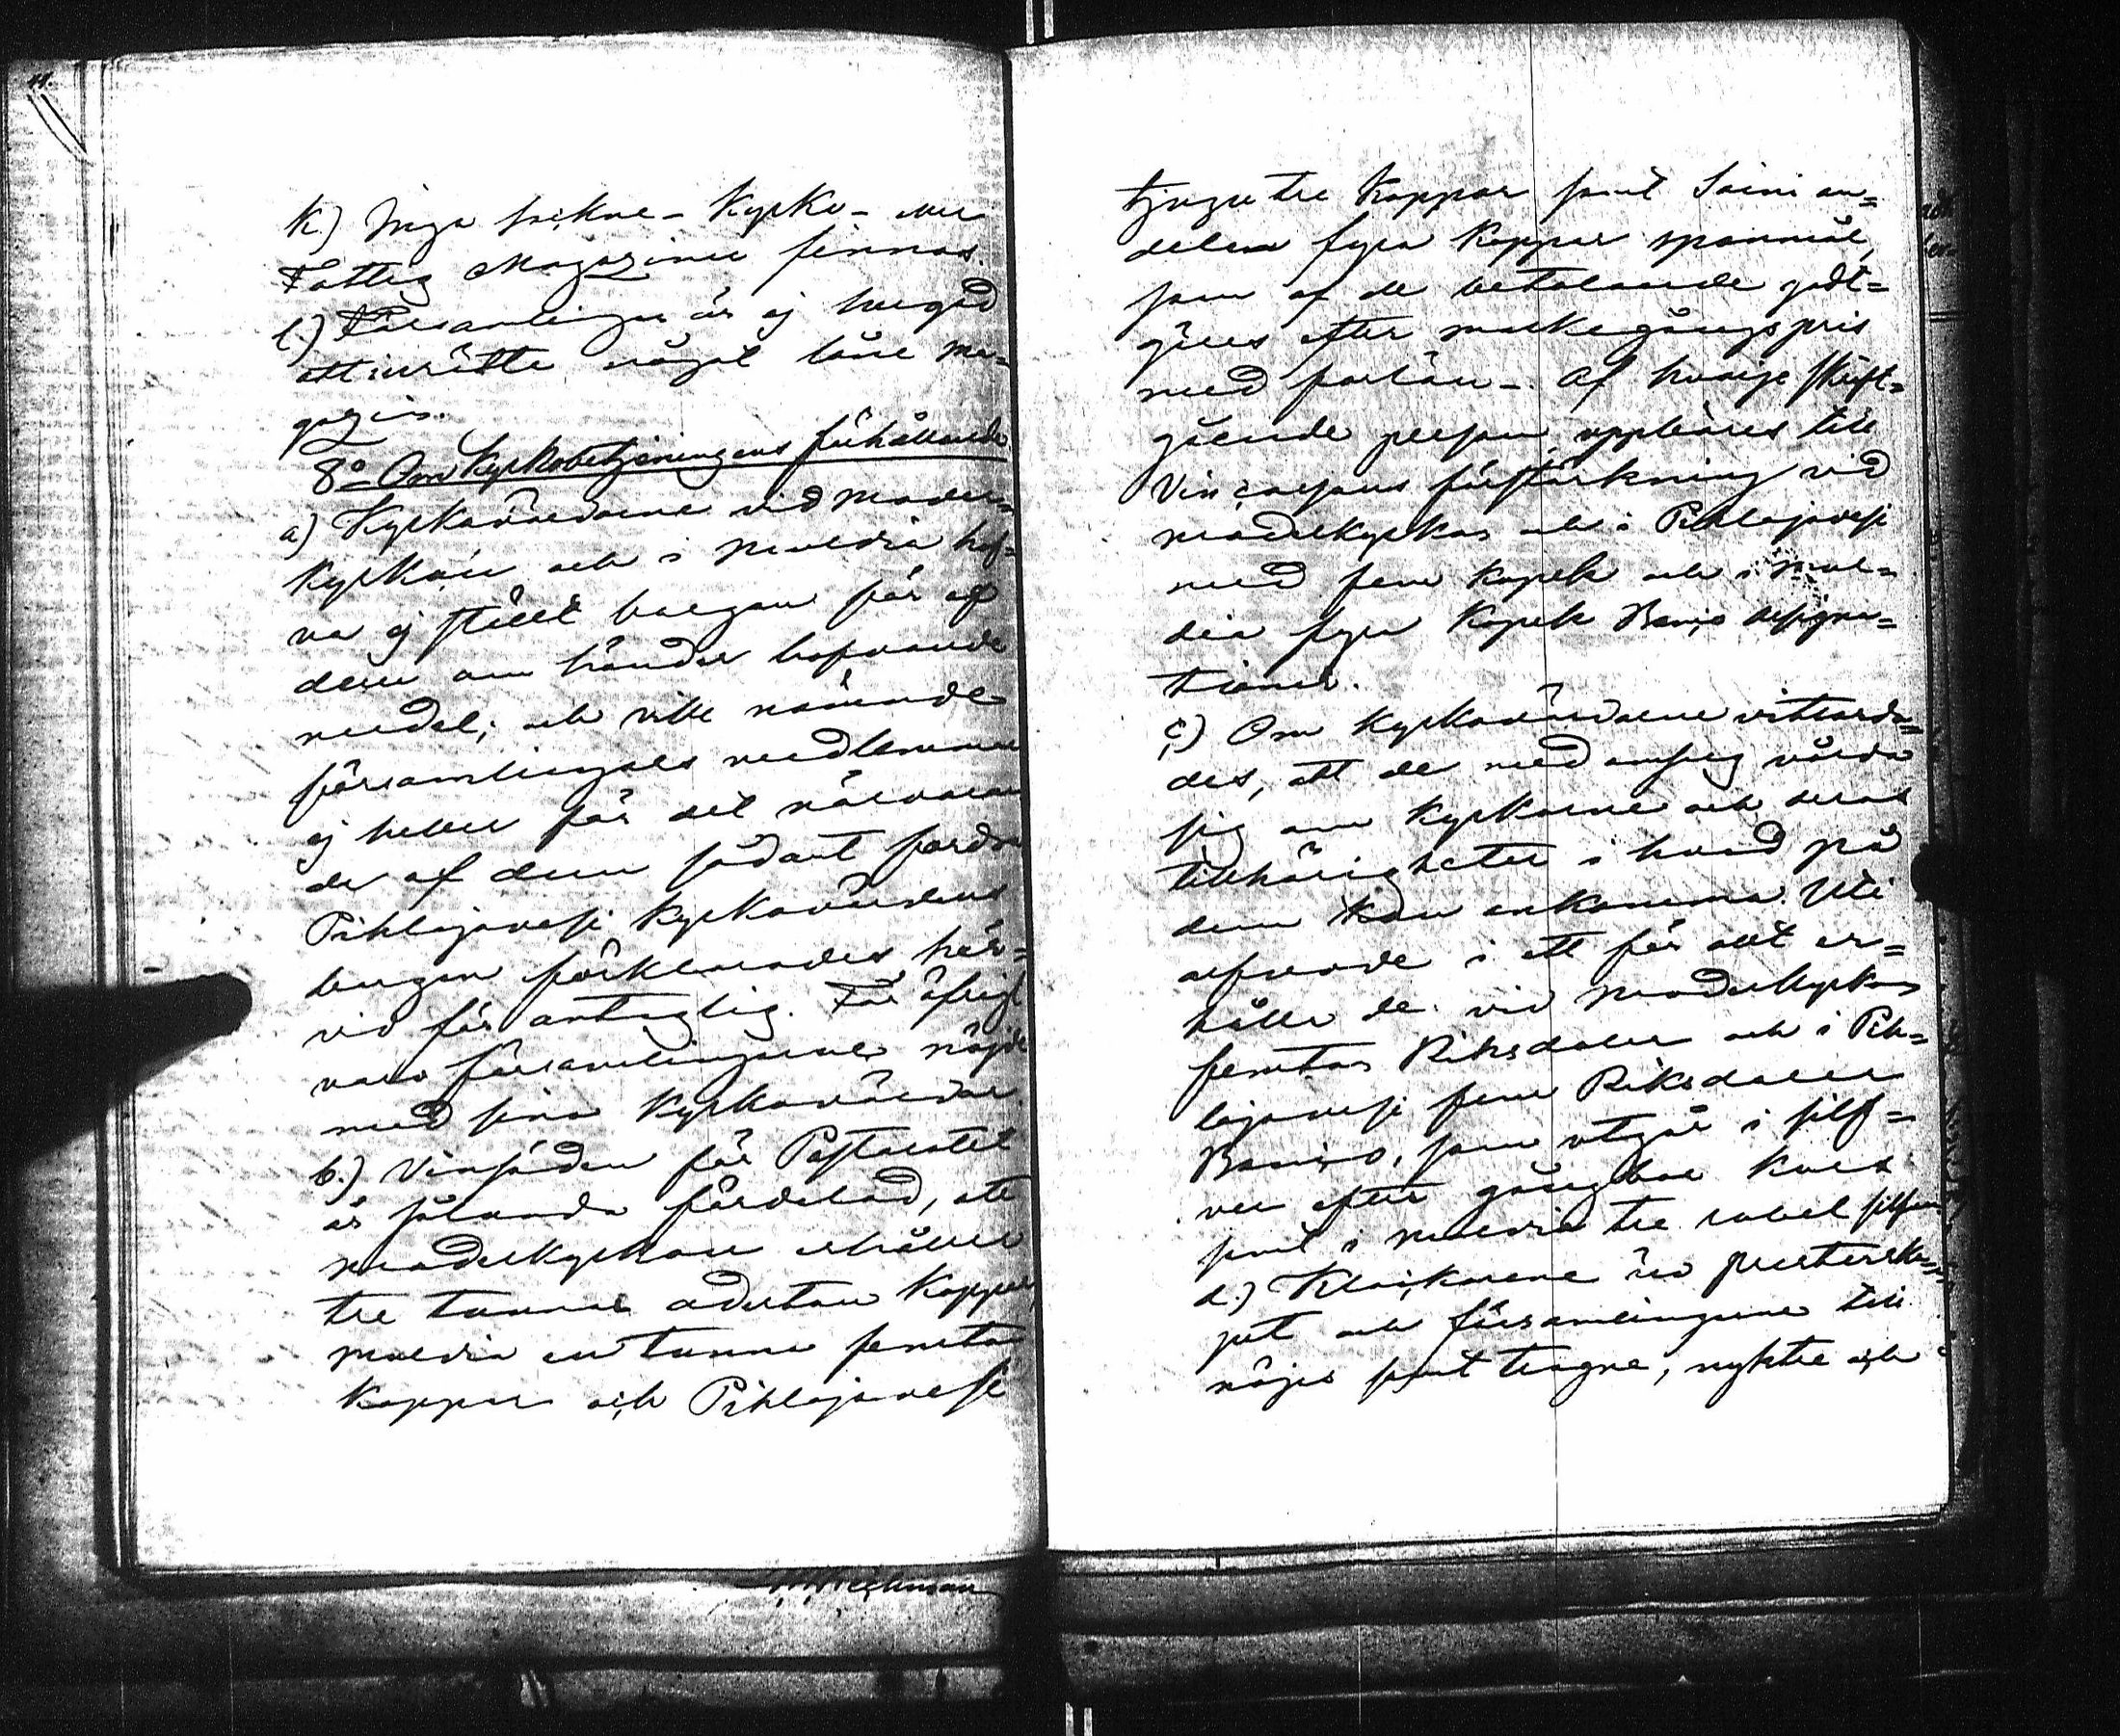 k.) Inga sockne- Kyrko- eller
Fattig Magaziner finnas.
l.) Församlingen är ej hugad
att inrätta något låne ma-
gazin.
8o Om Kyrkobetjeningens förhållande
a) Kyrkovärdarne vid moder-
kyrkan och i Multia haf-
va ej ställt borgen för af
dem om händer hafvande
medel; och ville närande
församlingars medlemmar
ej heller för det närvaran
de af dem sådant fordra
Pihlajavesi kyrkovärdens
borgen förklarades här-
vid för antaglig. För öfrigt
voro församlingarne nöjde
med sina Kyrkovärdar.
b.) Vinsäden för Pastoratet
är sålunda fördelad, att
moderkyrkan erhåller
tre tunnor aderton Kappar,
Multia en tunna femton
Kappar och Pihlajavesi
tjugutre Kappar samt Soini an-
delen fyra Kappar spannmål,
som af de betalande godt-
göres efter markegångspris
med forlön. Af hvarje skrift-
gående person uppbäres till
Vincassans förstärkning vid
moderkyrkan och i Pihlajavesi
med fem kopek och i Mul-
tia fyra Kopek Banco Assigna-
tioner.
c) Om Kyrkovärdarne vittorda-
des, att de med omsorg vårda
sig om Kyrkorne och deras
tillhörigheter i hvad på
dem kan ankomma. Uti
arfvode i ett för allt er-
hålla de vid moderkyrkan
femton Riksdaler och i Pih-
lajavesi fem Riksdaler
Banco, som utgår i silf-
ver efter gångbar kurs
samt i Multia tre rubel silfver
d.) Klockarene äro presterska-
pet och församlingarne till
nöjes samt trogne, nyktre och